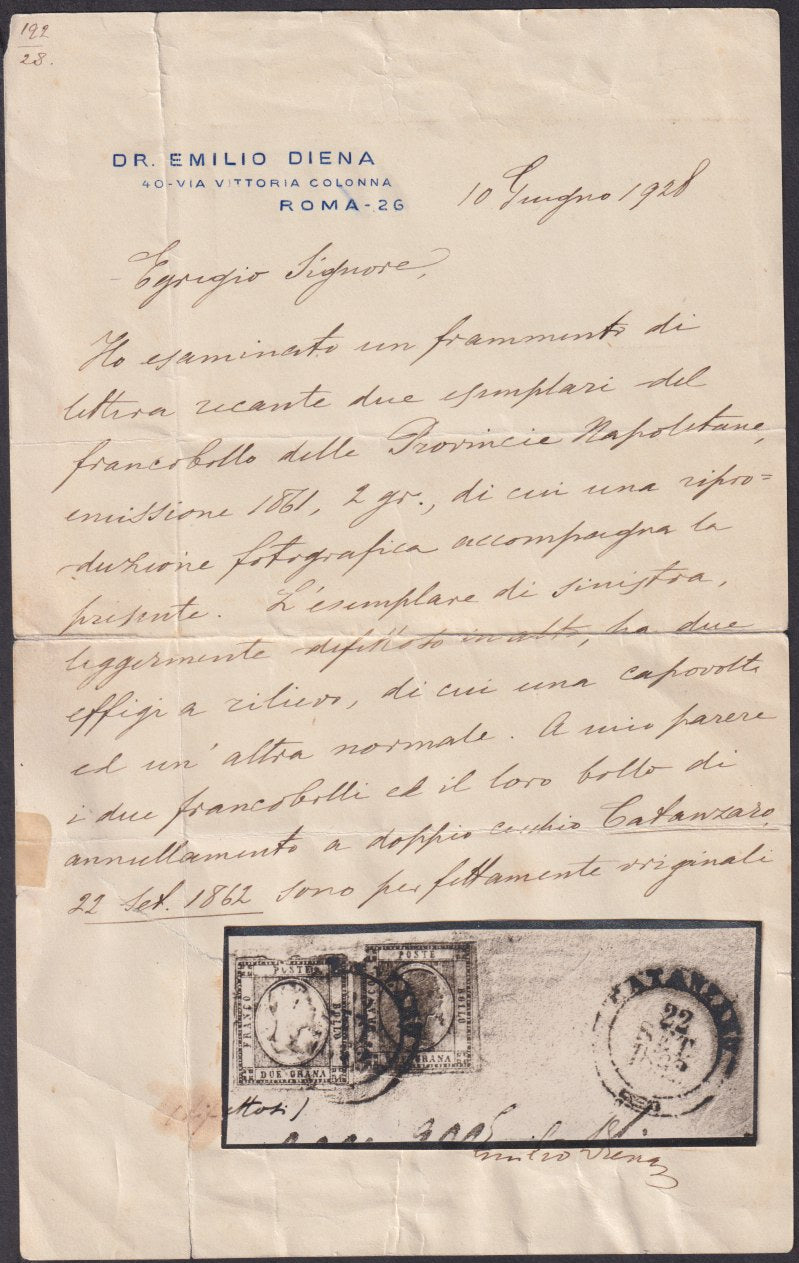 192
28.
DR. EMILIO DIENA
40-VIA VITTORIA COLONNA
ROMA-26
10 Giugno 1928
Egregio Signore,
Ho esaminato un frammento di
lettera recante due esemplari del
francobollo delle Provincie Napoletane,
emissione 1861, 2 gr., di cui una ripro=
duzione fotografica accompagna la
presente. L'esemplare di sinistra,
leggermente difettoso in alto, ha due
effigi a rilievo, di cui una capovolta
ed un'altra normale. A mio parere
i due francobolli ed il loro bollo di
annullamento a doppio cerchio Catanzaro
22 Set. 1862 sono perfettamente originali
POSTE
FRANCO
BOLLO
DUE GRANA
POSTE
FRANCO
BOLLO
DUE GRANA
CATANZARO
22
SET
(difettosi)
Emilio Diena